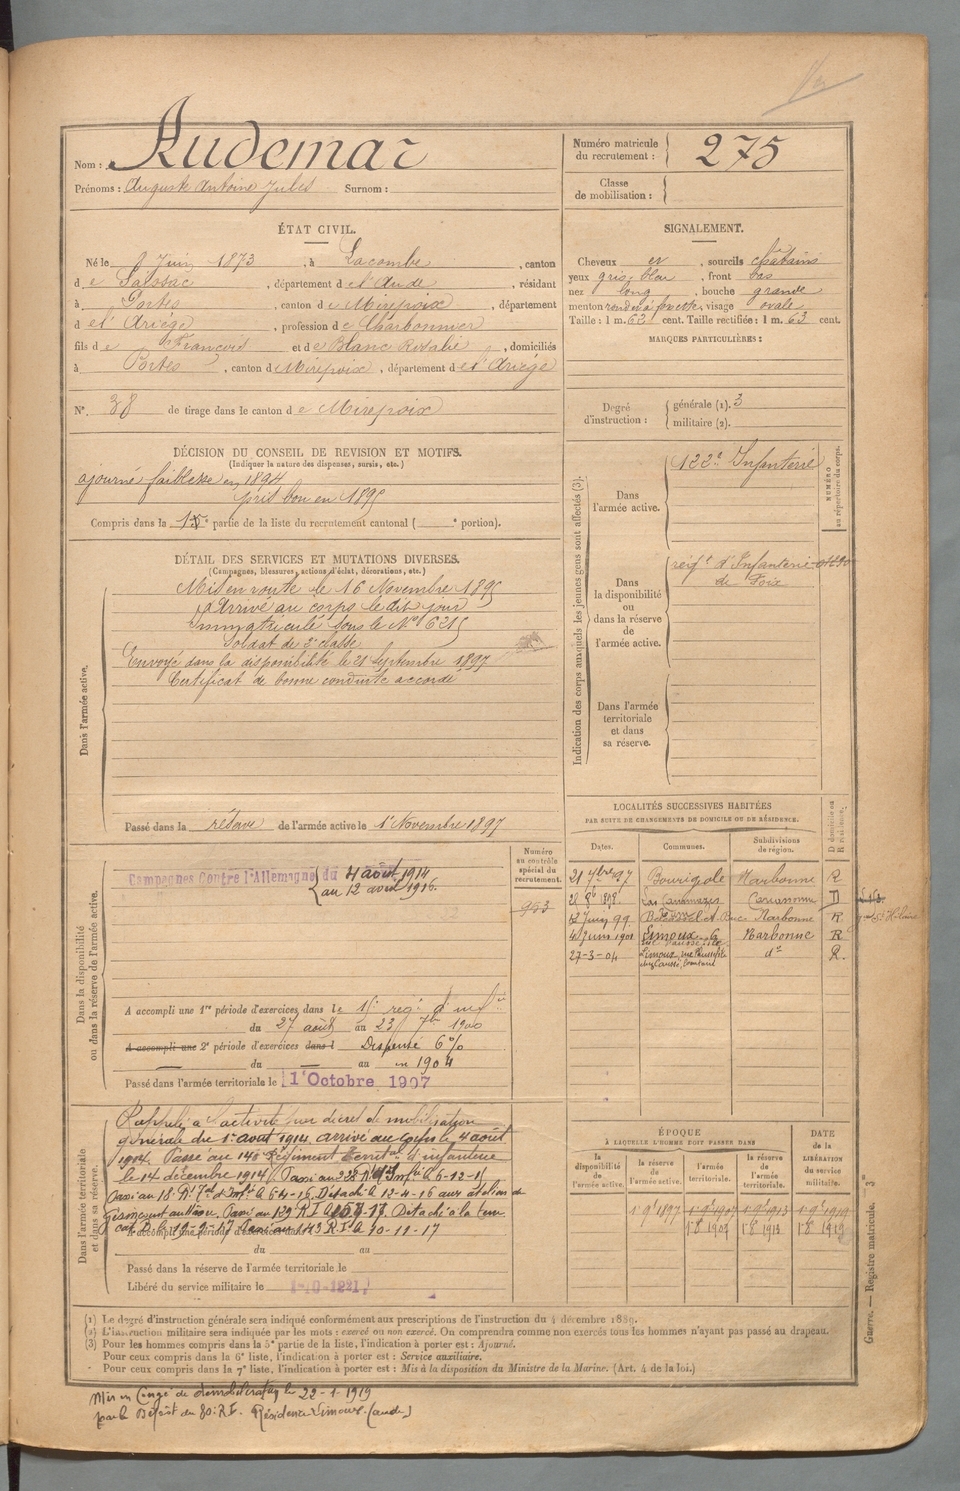 Nom : Audemar
Prénoms : Auguste Antoine Jules Surnom :
Numéro matricule du recrutement : 275
Classe de mobilisation :
ÉTAT CIVIL.
Né le 8 Juin 1873, à Lacombe, canton
de Saissac, département de l'Aude, résidant
à Portes, canton de Mirepoix, département
de l'Ariège, profession de Charbonnier
fils de François et de Blanc Rosalie, domiciliés
à Portes, canton d Mirepoix, département de l'Ariège
N° 38 de tirage dans le canton de Mirepoix
SIGNALEMENT.
Cheveux et, sourcils châtains
yeux gris bleu, front bas
nez long, bouche grande
menton rond à fossette, visage ovale
Taille : 1 m. 62 cent. Taille rectifiée : 1 m. 63 cent.
MARQUES PARTICULIÈRES :
Degré d'instruction : générale (1). 3
militaire (2).
DÉCISION DU CONSEIL DE REVISION ET MOTIFS.
(Indiquer la nature des dispenses, sursis, etc.)
ajourné faiblesse en 1894
pris bon en 1895
Compris dans la 1e partie de la liste du recrutement cantonal ( e portion).
DÉTAIL DES SERVICES ET MUTATIONS DIVERSES.
(Campagnes, blessures, actions d'éclat, décorations, etc.)
Dans l'armée active.
Mis en route le 16 Novembre 1895
Arrivé au corps le dit jour
Immatriculé sous le N° 6215
Soldat de 2e classe
Envoyé dans la disponibilité le 21 Septembre 1897
Certificat de bonne conduite accordé
Passé dans la réserve de l'armée active le 1 Novembre 1897
Indication des corps auxquels les jeunes gens sont affectés (3).
NUMÉRO au répertoire du corps.
Dans l'armée active.
122e Infanterie
Dans la disponibilité ou dans la réserve de l'armée active.
régt d'Infanterie
de Foix
Dans l'armée territoriale et dans sa réserve.
Dans la disponibilité ou dans la réserve de l'armée active.
Numéro au contrôle spécial du recrutement.
953
Campagnes Contre l'Allemagne du 4 août 1914
au 12 avril 1916.
A accompli une 1re période d'exercices dans le 15 reg d'inf
du 27 août au 23 7bre 1900
A accompli une 2e période d'exercices dans l Dispensé 6%
du au en 1904
Passé dans l'armée territoriale le 1 Octobre 1907
LOCALITÉS SUCCESSIVES HABITÉES
PAR SUITE DE CHANGEMENTS DE DOMICILE OU DE RÉSIDENCE.
D domicile ou R résidence.
Dates. Communes. Subdivisions de région.
21 7bre 97 Bourigeole Narbonne R
28 8b 1898 Las Carcassonne D
12 Juin 99 Belvèze Narbonne R
4 Juin 1901 Limoux Narbonne R
27-3-04 Limoux do R.
Dans l'armée territoriale et dans sa réserve.
Rappelé à l'activité par décret de mobilisation
générale du 1er août 1914, arrivé au corps le 4 août
1914. Passé au 143 Régiment Territal d'infanterie
le 14 décembre 1914
Passé au 18 Rt Tal d'Infie le 6-4-16. Détaché le 12-4-16 aux ateliers de
Passé au 129 R.I. Détaché à la terre
143 R.I. le 10-11-17
A accompli une période d'exercices dans l
du au
Passé dans la réserve de l'armée territoriale le
Libéré du service militaire le
ÉPOQUE
À LAQUELLE L'HOMME DOIT PASSER DANS
DATE de la LIBÉRATION du service militaire.
la disponibilité de l'armée active. la réserve de l'armée active. l'armée territoriale. la réserve de l'armée territoriale.
1 9 1897 1 9 1907 1 9 1913 1 9 1919
1 8 1907 1 8 1913 1 8 1919
Guerre. — Registre matricule. 3e
(1) Le degré d'instruction générale sera indiqué conformément aux prescriptions de l'instruction du 4 décembre 1889.
(2) L'instruction militaire sera indiquée par les mots : exercé ou non exercé. On comprendra comme non exercés tous les hommes n'ayant pas passé au drapeau.
(3) Pour les hommes compris dans la 5e partie de la liste, l'indication à porter est : Ajourné.
Pour ceux compris dans la 6e liste, l'indication à porter est : Service auxiliaire.
Pour ceux compris dans la 7e liste, l'indication à porter est : Mis à la disposition du Ministre de la Marine. (Art. 4 de la loi.)
Mis en Congé de démobilisation le 22-1-1919
par le Dépôt du 80e R.I. Résidence Limoux (Aude)